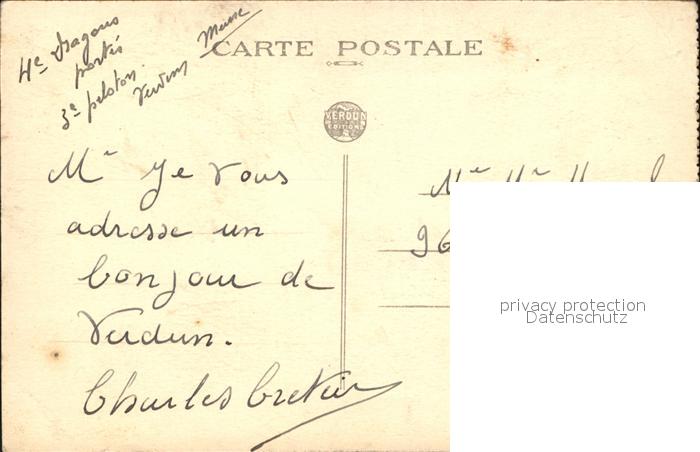 4e Dragons
portés
3e peloton.
Verdun Meuse
CARTE POSTALE
VERDUN
EDITIONS
Mr Je vous
adresse un
bonjour de
Verdun.
Charles Cretin
96
privacy protection
Datenschutz